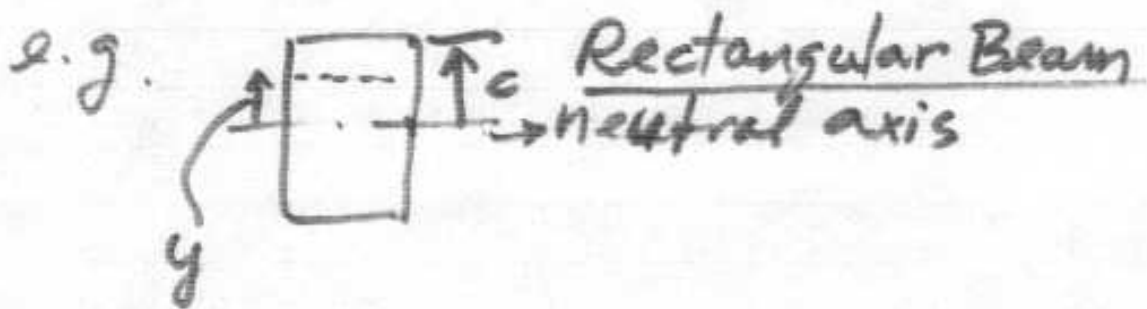 e.g.
c Rectangular Beam
neutral axis
y